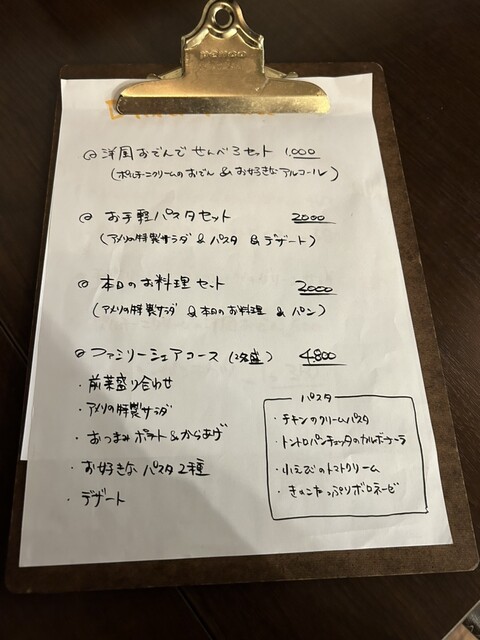 ◎ 洋風おでんでせんべろセット 1,000
(ポルチーニクリームのおでん & お好きなアルコール)
◎ お手軽パスタセット 2000
(アメリの特製サラダ & パスタ & デザート)
◎ 本日のお料理セット 2000
(アメリの特製サラダ & 本日のお料理 & パン)
◎ ファミリーシェアコース (2名盛) 4,800
・前菜盛り合わせ
・アメリの特製サラダ
・おつまみポテト&からあげ
・お好きなパスタ2種
・デザート
パスタ
・チキンのクリームパスタ
・トントロパンチェッタのカルボナーラ
・小えびのトマトクリーム
・きのこたっぷりボロネーゼ